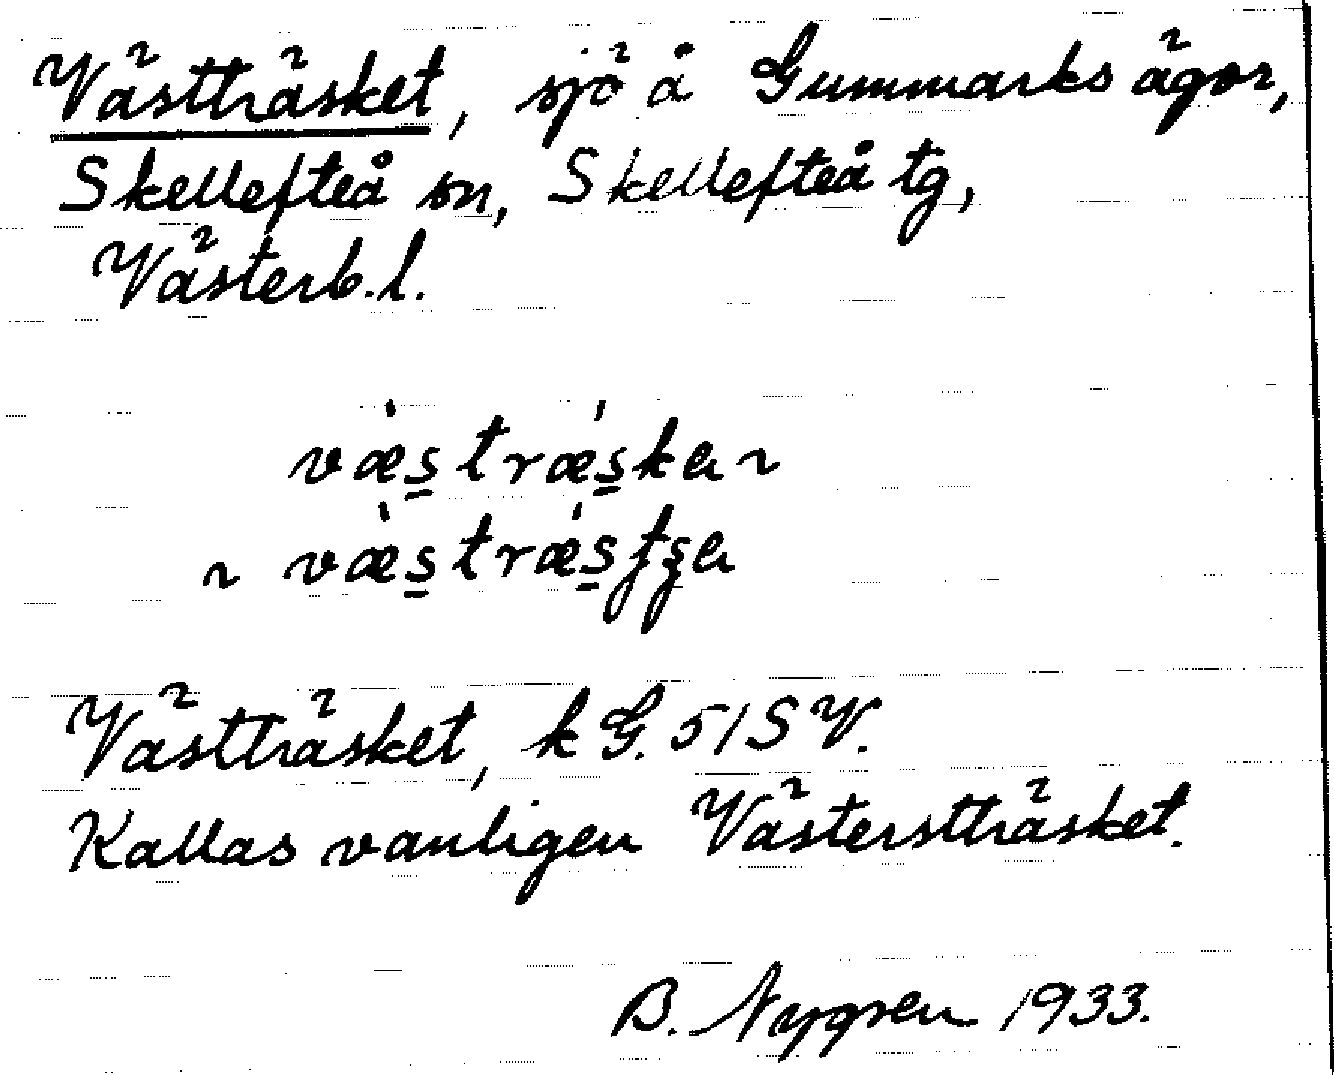 Västträsket, sjö å Gummarks ägor,
Skellefteå sn, Skellefteå tg,
Västerb.l.
væ̀strä́ska ~
~ væ̀strä́sʈʂa
Västträsket, kG. 51SV.
Kallas vanligen Västerstträsket.
B. Nygren 1933.